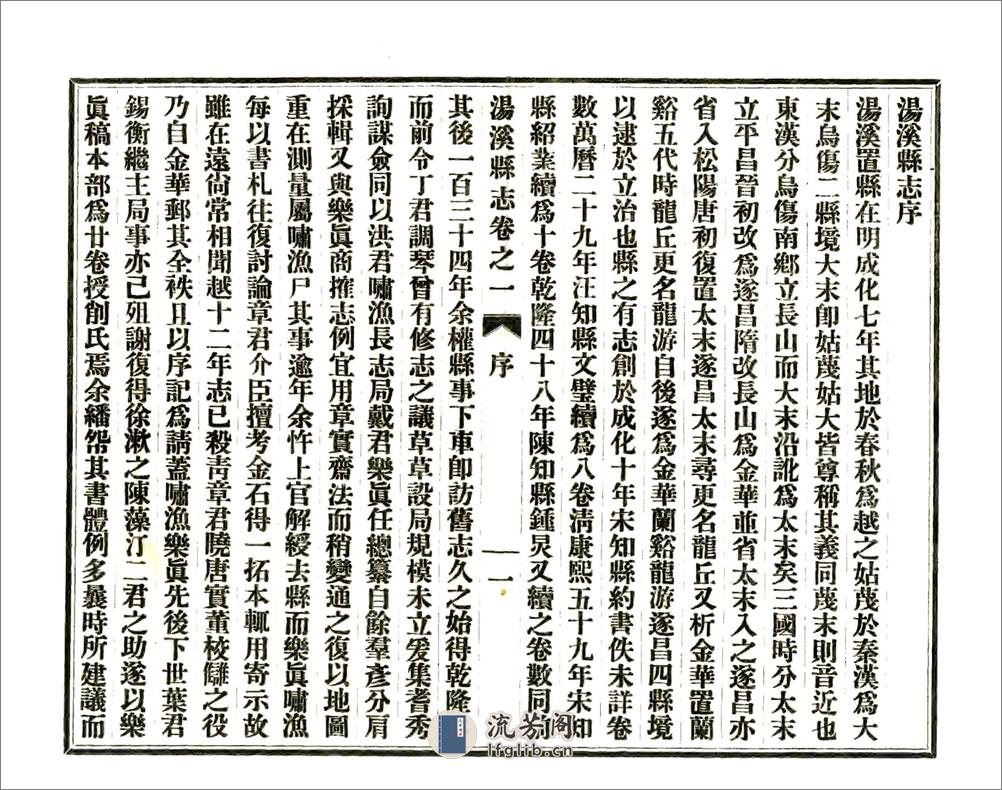 湯溪縣志序
湯溪置縣在明成化七年其地於春秋爲越之姑蔑於秦漢爲大
末烏傷二縣境大末卽姑蔑姑大皆尊稱其義同蔑末則音近也
東漢分烏傷南鄉立長山而大末沿訛爲太末矣三國時分太末
立平昌晉初改爲遂昌隋改長山爲金華並省太末入之遂昌亦
省入松陽唐初復置太末遂昌太末尋更名龍丘又析金華置蘭
谿五代時龍丘更名龍游自後遂爲金華蘭谿龍游遂昌四縣境
以逮於立治也縣之有志創於成化十年宋知縣約書佚未詳卷
數萬曆二十九年汪知縣文璧續爲八卷淸康熙五十九年宋知
縣紹業續爲十卷乾隆四十八年陳知縣鍾炅又續之卷數同
湯溪縣志卷之一 序 一
其後一百三十四年余權縣事下車卽訪舊志久之始得乾隆
而前令丁君調琴曾有修志之議草草設局規模未立爰集耆秀
詢謀僉同以洪君嘯漁長志局戴君樂眞任總纂自餘羣彥分肩
採輯又與樂眞商搉志例宜用章實齋法而稍變通之復以地圖
重在測量屬嘯漁尸其事逾年余忤上官解綬去縣而樂眞嘯漁
每以書札往復討論章君介臣擅考金石得一拓本輒用寄示故
雖在遠尙常相聞越十二年志已殺靑章君曉唐實董校讎之役
乃自金華郵其全袟且以序記爲請蓋嘯漁樂眞先後下世葉君
錫衡繼主局事亦已殂謝復得徐漱之陳藻汀二君之助遂以樂
眞稿本部爲廿卷授剞氏焉余繙帋其書體例多曩時所建議而
流芳阁
lfglib.cn